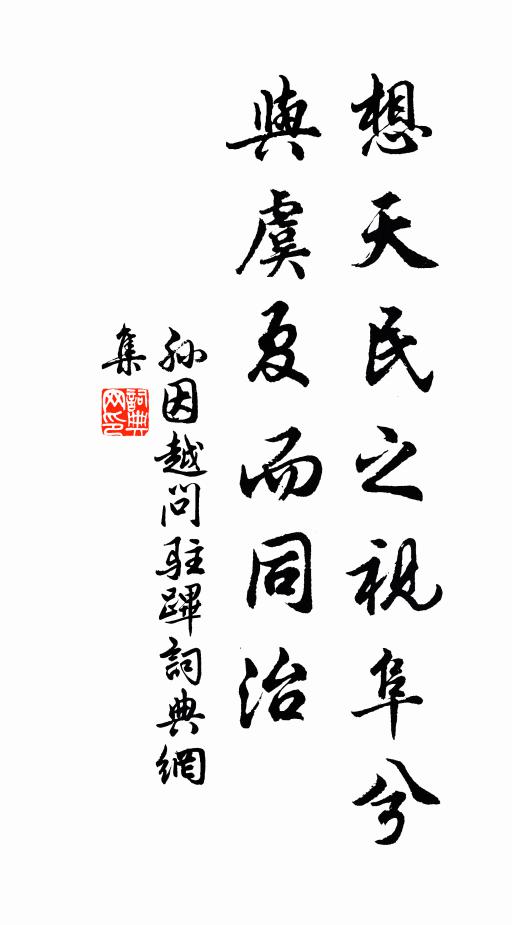 想天民之視阜兮
與虞夏而同治
孫因越問駐蹕詞典網
集
詞典
网印